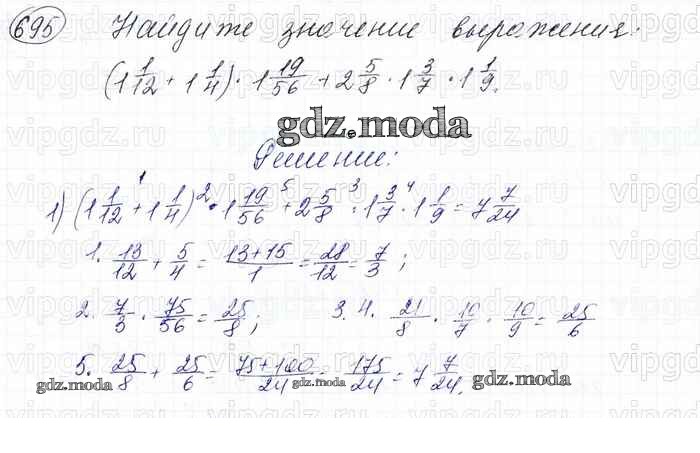 695 Найдите значение выражения:
(1 1/12 + 1 1/4) · 1 19/56 + 2 5/8 · 1 3/7 · 1 1/9.
gdz.moda
Решение:
1) (1 1/12 +¹ 1 1/4) ·² 1 19/56 +⁵ 2 5/8 ·³ 1 3/7 ·⁴ 1 1/9 = 7 7/24
1. 13/12 + 5/4 = (13+15)/1 = 28/12 = 7/3 ;
2. 7/3 · 75/56 = 25/8 ; 3. 4. 21/8 · 10/7 · 10/9 = 25/6
5. 25/8 + 25/6 = (75+100)/24 = 175/24 = 7 7/24.
gdz.moda gdz.moda gdz.moda